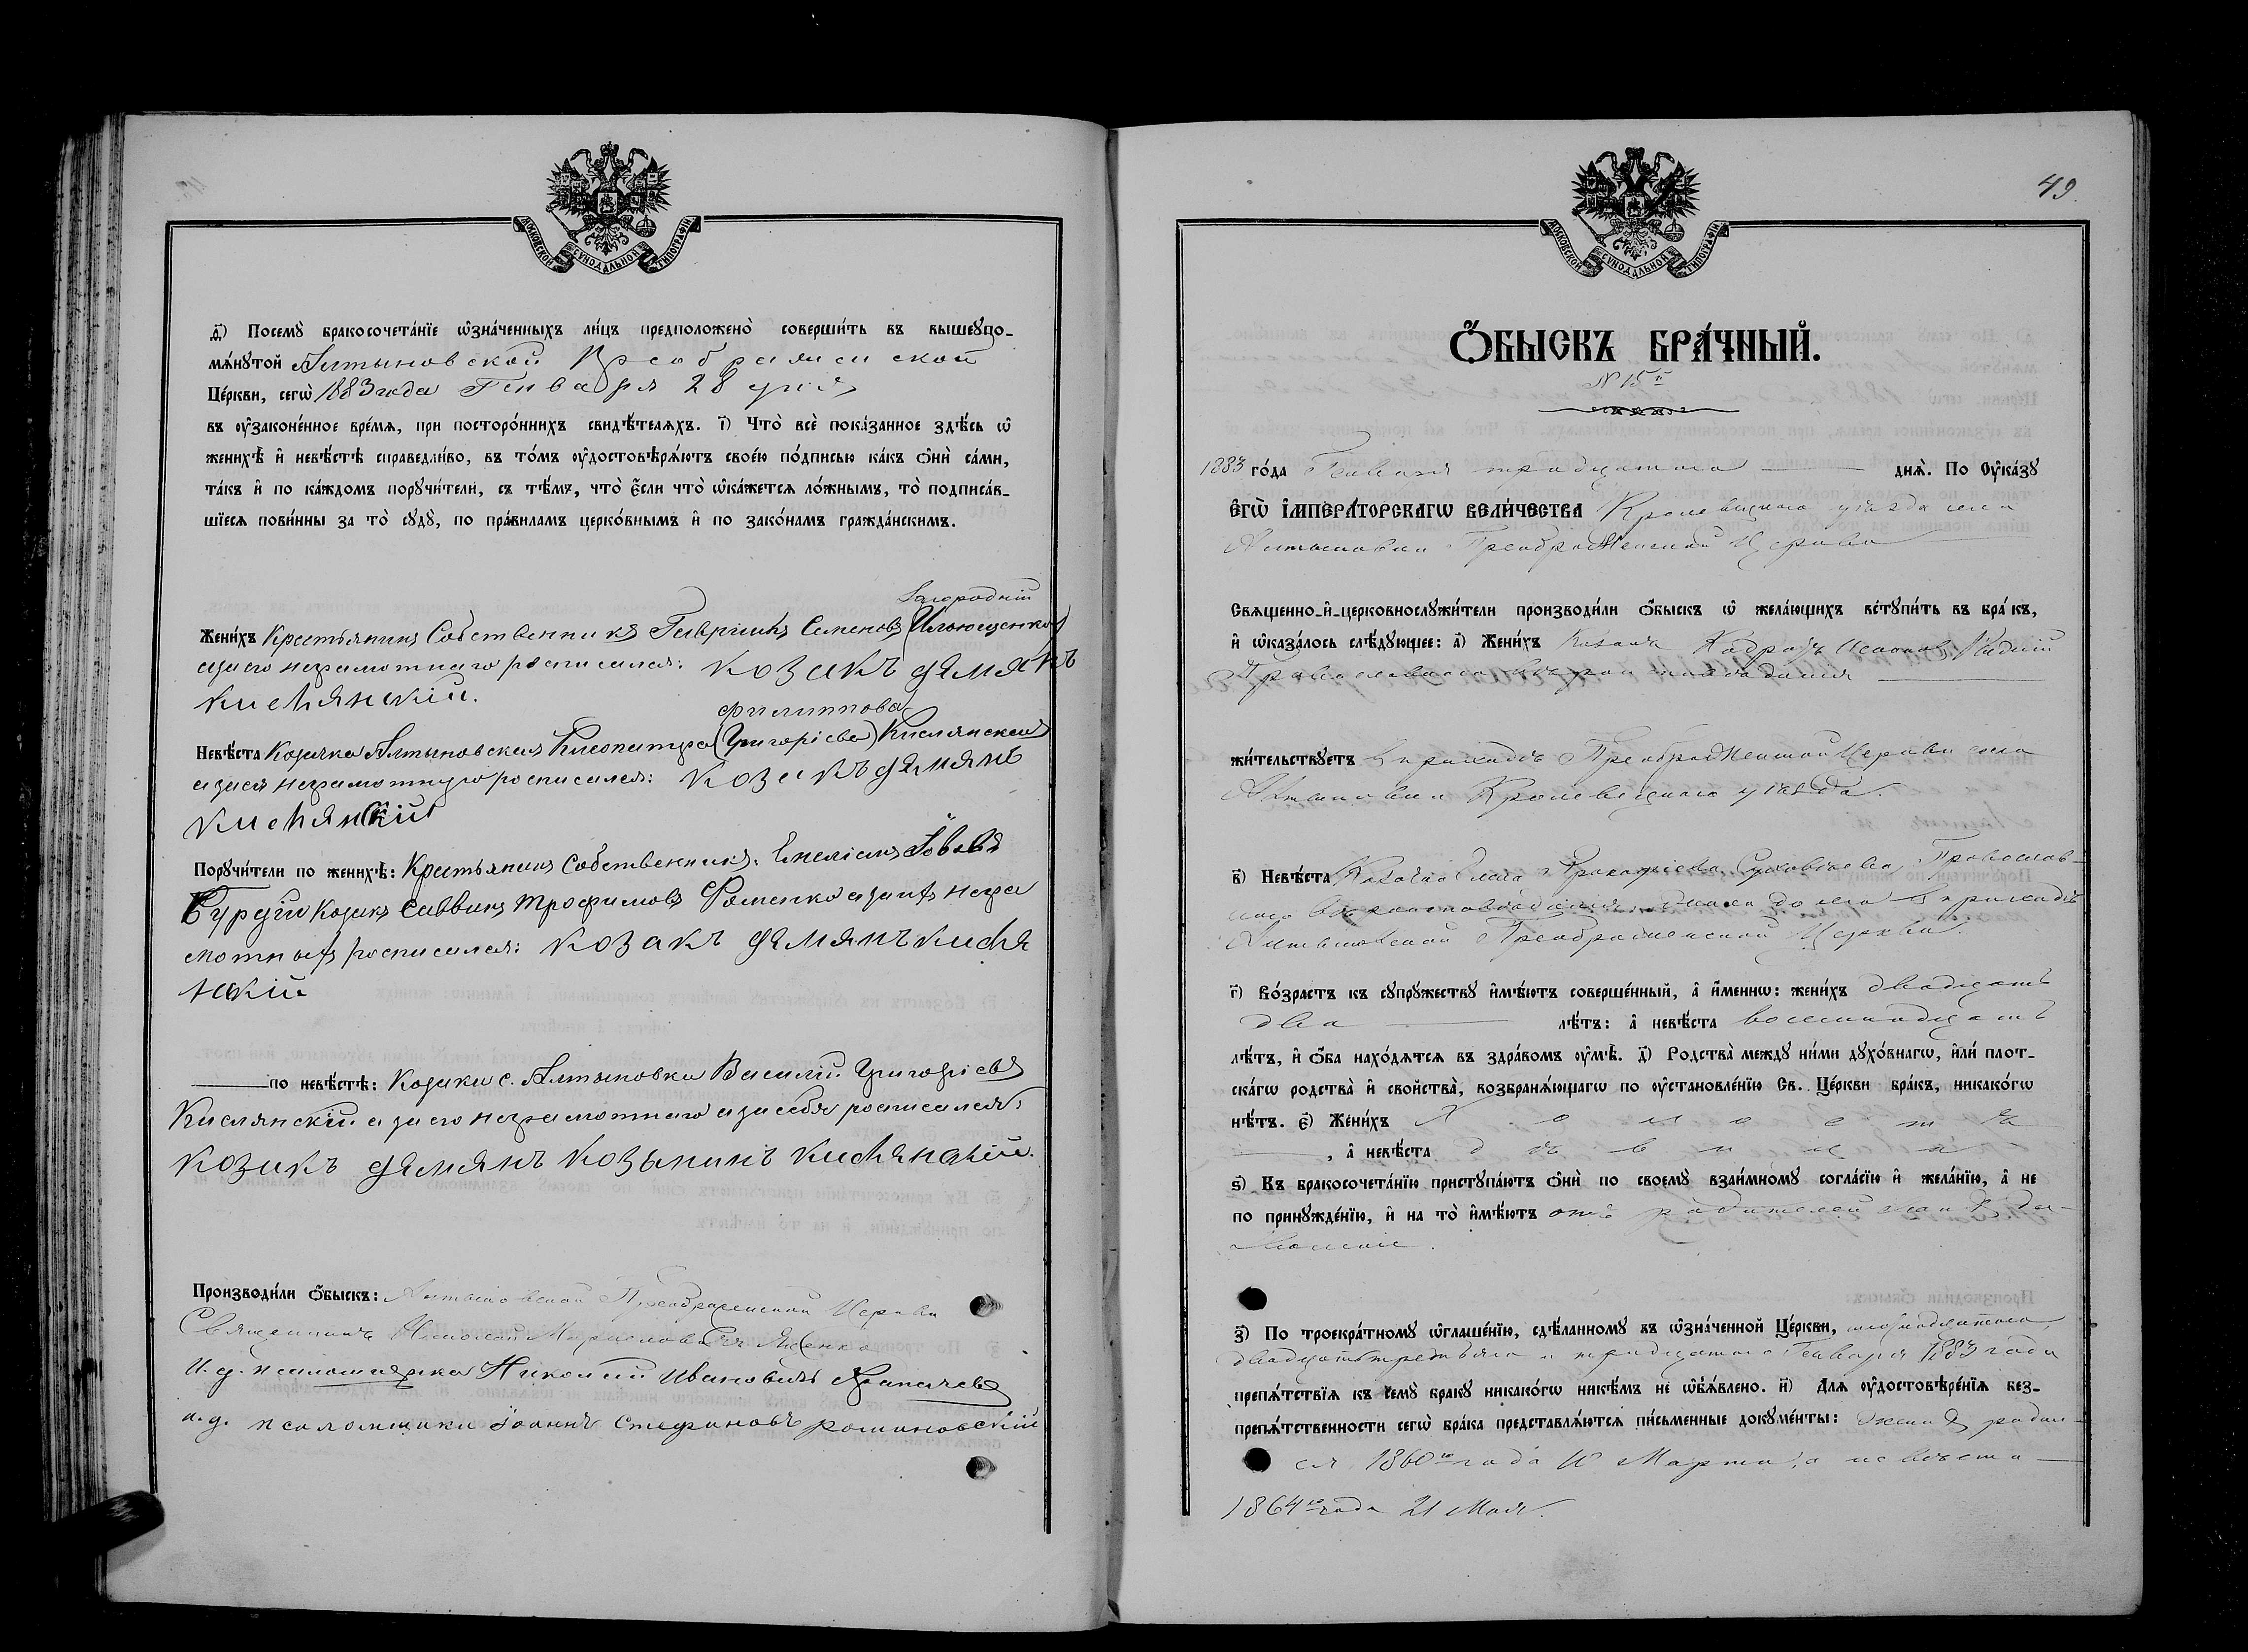 МОСКОВСКОЙ СѴНОДАЛЬНОЙ ТИПОГРАФІИ
д҃) Посемꙋ̀ бракосочета́нїе ѡ҆зна́ченныхъ ли́цъ предположено̀ соверши́ть въ вышеꙋпо-
мѧ́нꙋтой Алтыновской Преображенской
Це́ркви, сегѡ̀ 1883 года Генваря 28 дня
въ оу҆законе́нное вре́мѧ, при посторо́ннихъ свидѣ́телѧхъ. і҃) Что̀ всѐ пока́занное здѣ́сь ѡ҆
женихѣ̀ и҆ невѣ́стѣ справедли́во, въ то́мъ оу҆достовѣрѧ́ютъ свое́ю по́дписью ка́къ ѻ҆нѝ са́ми,
та́къ и҆ по ка́ждомъ порꙋчи́тели, съ тѣ́мъ, что̀ є҆́сли что̀ ѡ҆ка́жетсѧ ло́жнымъ, то̀ подписа́в-
шїесѧ пови́нны за то̀ сꙋдꙋ̀, по пра́виламъ церко́внымъ и҆ по зако́намъ гражда́нскимъ.
Загородній
Жени́хъ Крестьянинъ Собственникъ Гавріилъ Семеновъ (Ильющенко)
а за его неграмотнаго росписался: козакъ демянъ
кислянскій.
Филиппова
Невѣ́ста Козачка Алтыновская Клеопатра (Григоріева) Кислянская
а за ея неграмотную росписался: козакъ демянъ
кислянский
Порꙋчи́тели по женихѣ̀: Крестьянинъ Собственникъ: Емеліанъ Іовлевъ
Бурдій Козакъ Саввинъ Трофимовъ Фоменко а за ихъ негра
мотныхъ росписался: козакъ демянъ кисля
нский
по невѣ́стѣ: Козаки с. Алтыновки Василій Григоріевъ
Кислянскій а за его неграмотнаго а за себя росписался:
козакъ демянъ козьминъ кислянский.
Производи́ли ѻ҆́быскъ: Алтыновской Преображенской Церкви
Священникъ Николай
и. д. псаломщика Николай Ивановичъ
и. д. псаломщика Іоаннъ Стефановъ романовский
49.
МОСКОВСКОЙ СѴНОДАЛЬНОЙ ТИПОГРАФІИ
Ѻ҆́БЫСКЪ БРА́ЧНЫЙ.
№ 15й
1883 го́да Генваря тридцатого днѧ̀. По Оу҆ка́зꙋ
Є҆ГѠ̀ І҆МПЕРА́ТОРСКАГѠ ВЕЛИ́ЧЕСТВА Кролевецкаго уѣзда села
Алтыновки Преображенской Церкви
Свѧщенно-и҆-церковнослꙋжи́тели производи́ли ѻ҆́быскъ ѡ҆ жела́ющихъ встꙋпи́ть въ бра́къ,
и҆ ѡ҆каза́лось слѣ́дꙋющее: а҃) Жени́хъ Козакъ
Православнаго вѣроисповѣданія
жи́тельствꙋетъ в приходѣ Преображенской Церкви села
Алтыновки Кролевецкаго уѣзда.
в҃) Невѣ́ста Козачка Прокопіева Православ-
наго вѣроисповѣданія, жила до сего в приходѣ
Алтыновской Преображенской Церкви.
г҃) Во́зрастъ къ сꙋпрꙋ́жествꙋ и҆мѣ́ютъ соверше́нный, а҆ и҆́меннѡ: жени́хъ двадцать
два лѣ́тъ: а҆ невѣ́ста восемнадцать
лѣ́тъ, и҆ ѻ҆́ба нахо́дѧтсѧ въ здра́вомъ оу҆мѣ̀. д҃) Родства̀ междꙋ ни́ми дꙋхо́внагѡ, и҆лѝ плот-
ска́гѡ родства̀ и҆ свойства̀, возбранѧ́ющагѡ по оу҆становле́нїю Св. Це́ркви бра́къ, никако́гѡ
нѣ́тъ. є҃) Жени́хъ холостъ
, а҆ невѣ́ста дѣвица
ѕ҃) Къ бракосочета́нїю пристꙋпа́ютъ ѻ҆нѝ по своемꙋ̀ взаи́мномꙋ согла́сїю и҆ жела́нїю, а҆ не
по принꙋжде́нїю, и҆ на то̀ и҆мѣ́ютъ отъ родителей
з҃) По троекра́тномꙋ ѡ҆глаше́нїю, сдѣ́ланномꙋ въ ѡ҆зна́ченной Це́ркви,
двадцать третьяго и тридцатаго Генваря 1883 года
препѧ́тствїѧ къ семꙋ̀ бракꙋ никако́гѡ никѣ́мъ не ѡ҆бъѧ́влено. и҃) Длѧ оу҆достовѣре́нїѧ без-
препѧ́тственности сегѡ̀ бра́ка представлѧ́ютсѧ пи́сьменные докꙋме́нты: Женихъ родил-
ся 1860го года 10 Марта, а невеста
1864го года 21 Мая.